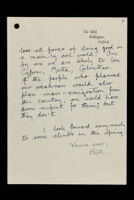 The Mill,
Kidlington,
Oxford
lose all power of doing good in
a mainly evil world. One
by one we are likely to lose
Cyprus, Malta, Gibraltar
if the people who planned
our weakness would also
plan mass-emigration from
this country, one could have
some respect for them; but
they don't.
I look forward very much
to some strolls in the spring.
Yours ever,